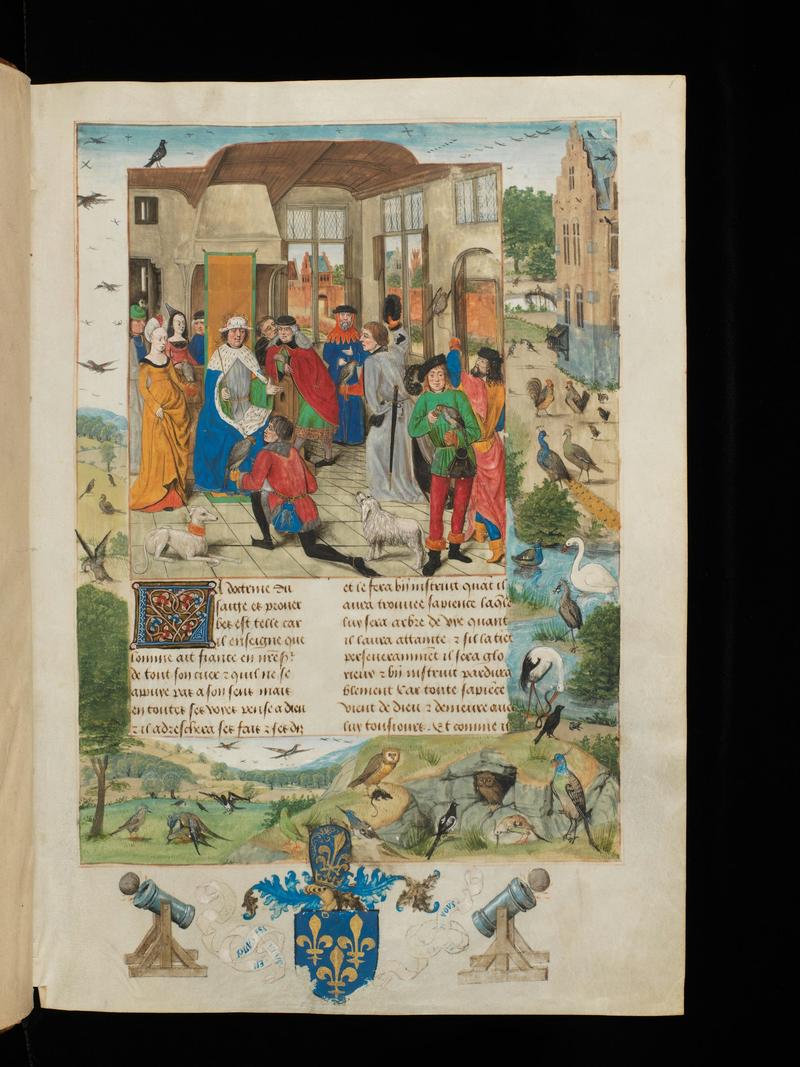 La doctrine du
saige es prouer
bes est telle car
il enseigne que
lomme ait fiance en nr̄e sr̄
de tout son cuer ⁊ quil ne se
appuye pas a son sens mais
en toutes ses voyes pense a dieu
⁊ il adreschera ses fais ⁊ ses dis
et le fera bn̄ instruit quāt il
aura trouuee sapience laq̄le
luy sera arbre de vye quant
il laura attainte ⁊ sil la tiēt
perseueramment il sera glo
rieux ⁊ bn̄ instruit pardura
blement Car toute sapiēce
vient de dieu ⁊ demeure auec
luy tousiours. Et comme il